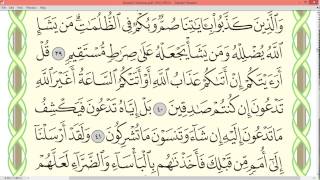 وَالَّذِينَ كَذَّبُوا۟ بِـَٔايَـٰتِنَا صُمٌّ وَبُكْمٌ فِى ٱلظُّلُمَـٰتِ ۗ مَن يَشَإِ
ٱللَّهُ يُضْلِلْهُ وَمَن يَشَأْ يَجْعَلْهُ عَلَىٰ صِرَٰطٍ مُّسْتَقِيمٍ ٣٩ قُلْ
أَرَءَيْتَكُمْ إِنْ أَتَىٰكُمْ عَذَابُ ٱللَّهِ أَوْ أَتَتْكُمُ ٱلسَّاعَةُ أَغَيْرَ ٱللَّهِ
تَدْعُونَ إِن كُنتُمْ صَـٰدِقِينَ ٤٠ بَلْ إِيَّاهُ تَدْعُونَ فَيَكْشِفُ
مَا تَدْعُونَ إِلَيْهِ إِن شَآءَ وَتَنسَوْنَ مَا تُشْرِكُونَ ٤١ وَلَقَدْ أَرْسَلْنَآ
إِلَىٰٓ أُمَمٍ مِّن قَبْلِكَ فَأَخَذْنَـٰهُم بِٱلْبَأْسَآءِ وَٱلضَّرَّآءِ لَعَلَّهُمْ